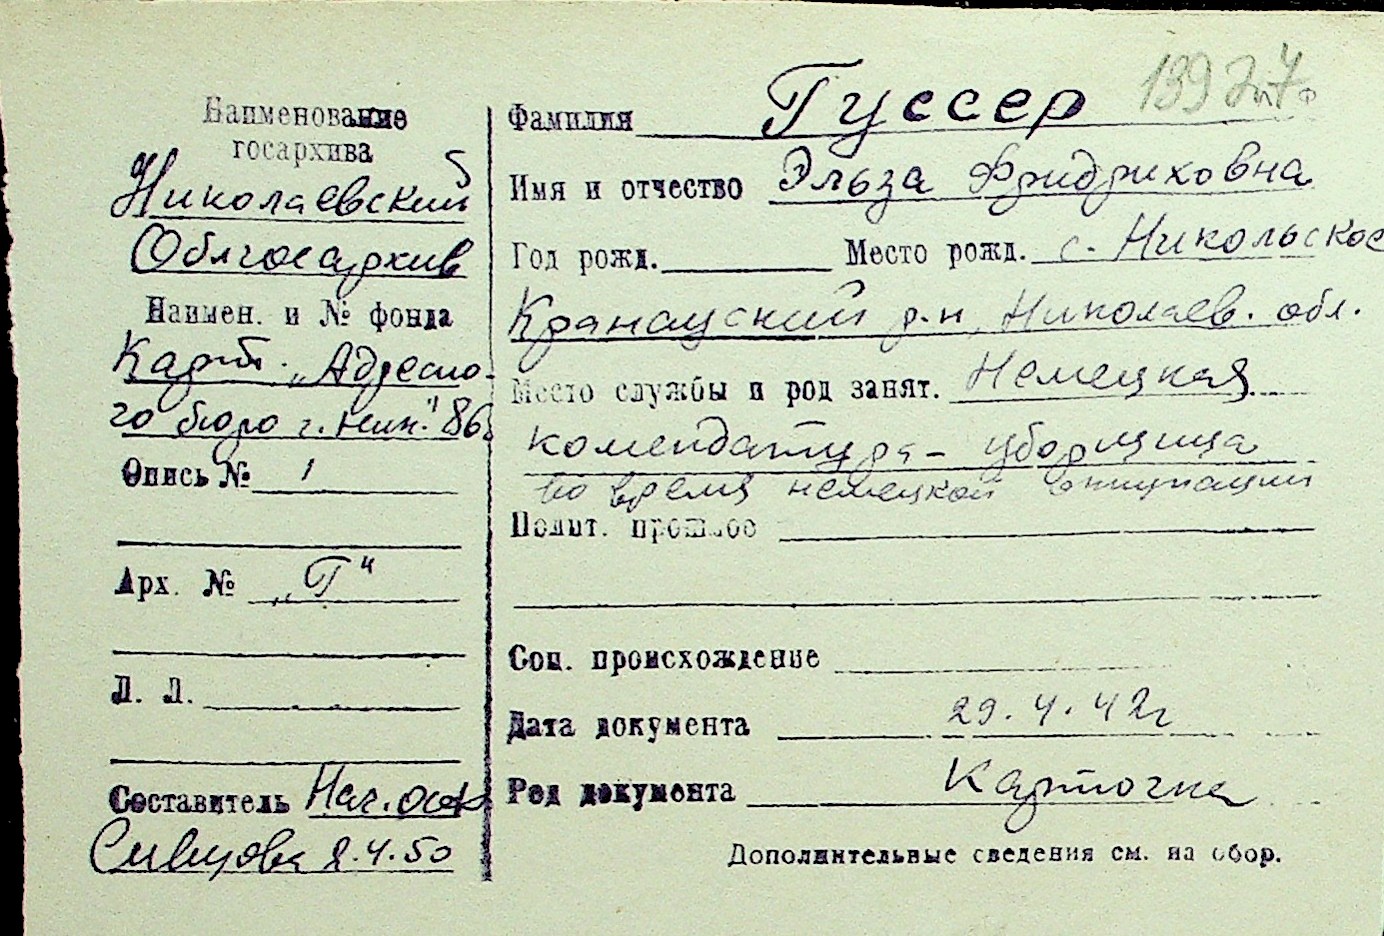 Наименование
госархива
Николаевский
Облгосархив
Наимен. и № фонда
Карт. „Адресно-
го бюро г. Ник." 86
Опись № 1
Арх. № „Г"
Л. Л.
Составитель Нач. оаф
Сивцова 8.4.50
139
Фамилия Гуссер
Имя и отчество Эльза Фридриховна
Год рожд. Место рожд. с. Никольское
р-н, Николаев. обл.
Место службы и род занят. Немецкая
комендатура - уборщица
во время немецкой оккупации
Полит. прошлое
Соц. происхождение
Дата документа 29.4.42г
Род документа Карточка
Дополнительные сведения см. на обор.